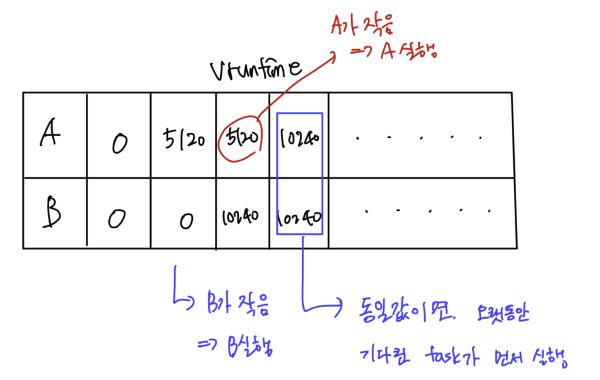 A가 작음
=> A 실행
Vruntime
A 0 5120 5120 10240 . . . . .
B 0 0 10240 10240 . . . . .
B가 작음
=> B실행
동일값이면. 오랫동안
기다린 task가 먼저 실행